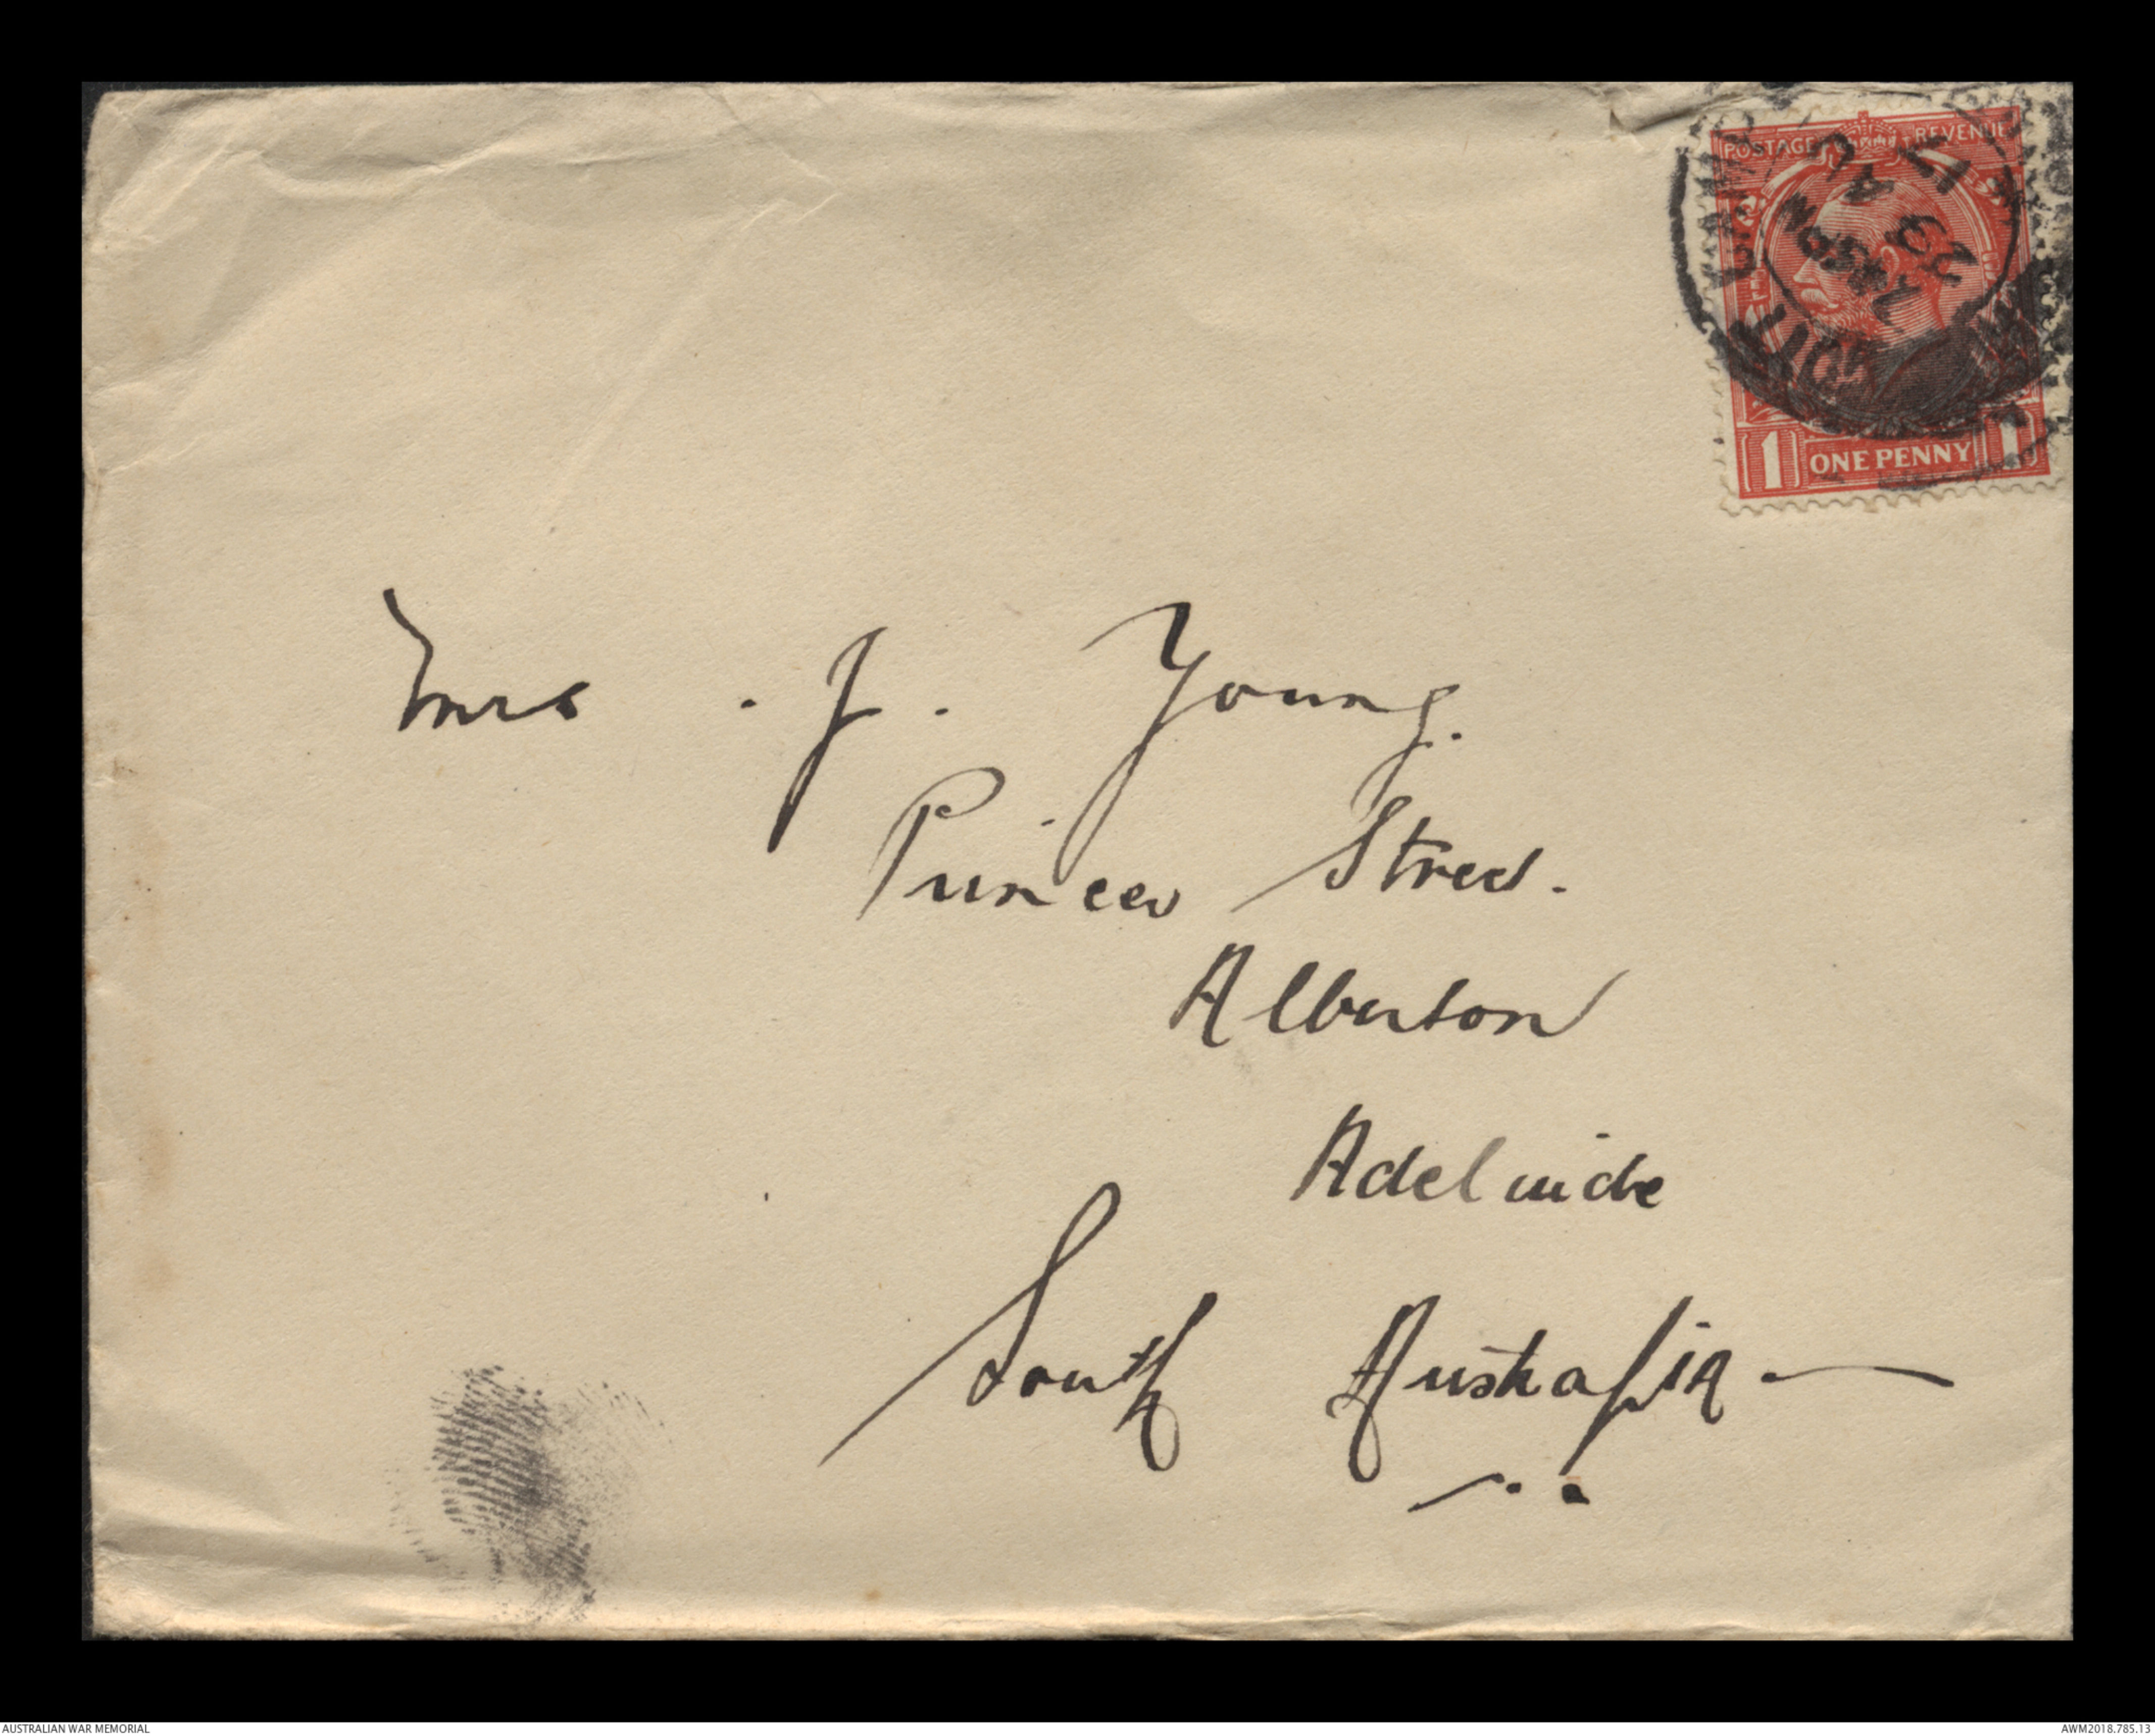 POSTAGE REVENUE
7.45 PM
29 AU
17
1 ONE PENNY 1
Mrs . J . Young.
Princes Street.
Alberton
Adelaide
South Australia —
AUSTRALIAN WAR MEMORIAL
AWM2018.785.13